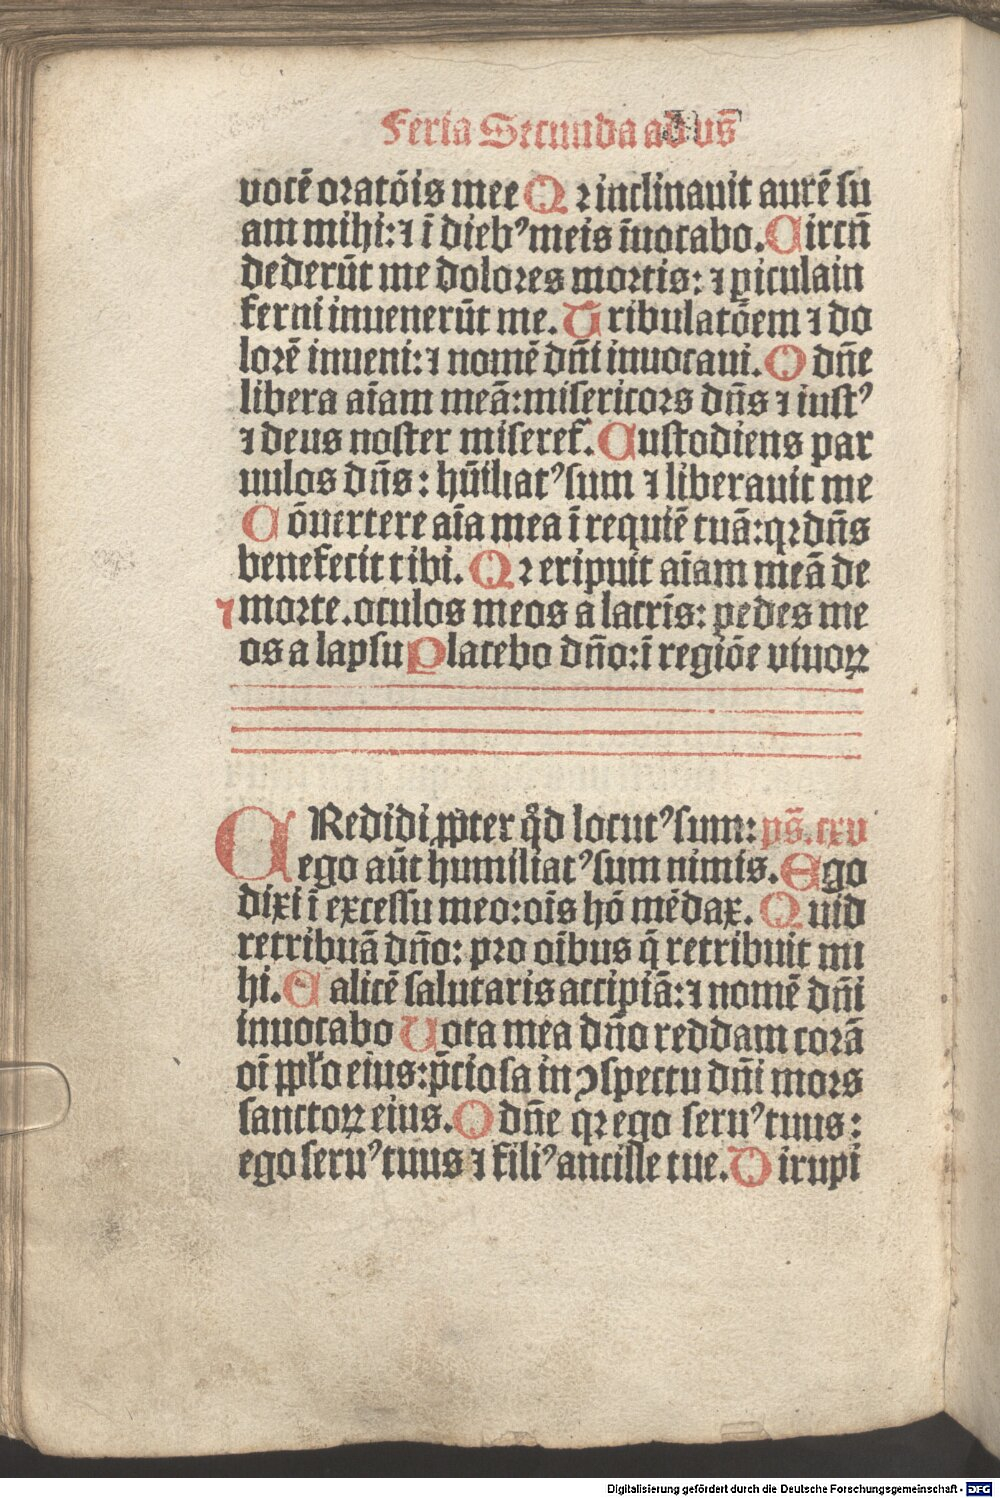 Feria Secunda ad vs̄
vocē oratōis mee Qꝛ inclinauit aurē su
am mihi: ⁊ ī dieb᾽ meis īuocabo. Circū
dederūt me dolores mortis: ⁊ ꝑicula in
ferni inuenerūt me. Tribulatōem ⁊ do
lorē inueni: ⁊ nomē dn̄i inuocaui. O dn̄e
libera aīam meā: misericors dn̄s ⁊ iust᾽
⁊ deus noster miseret̄. Custodiens par
uulos dn̄s: hūiliat᾽ sum ⁊ liberauit me
Cōuertere aīa mea ī requiē tuā: qꝛ dn̄s
benefecit tibi. Qꝛ eripuit aīam meā de
⁊ morte. oculos meos a lacrīs: pedes me
os a lapsu Placebo dn̄o: ī regiōe viuoꝝ
CRedidi ꝓpter qd̄ locut᾽ sum: ps̄. cxv
ego aūt humiliat᾽ sum nimis. Ego
dixi ī excessu meo: oīs hō mēdax. Quid
retribuā dn̄o: pro oībus q̄ retribuit mi
hi. Calicē salutaris accipiā: ⁊ nomē dn̄i
inuocabo Vota mea dn̄o reddam corā
oī ppl̄o eius: p̄ciosa in ꝯspectu dn̄i mors
sanctoꝝ eius. O dn̄e qꝛ ego seru᾽ tuus:
ego seru᾽ tuus ⁊ fili᾽ ancille tue. Dirupi
Digitalisierung gefördert durch die Deutsche Forschungsgemeinschaft - DFG